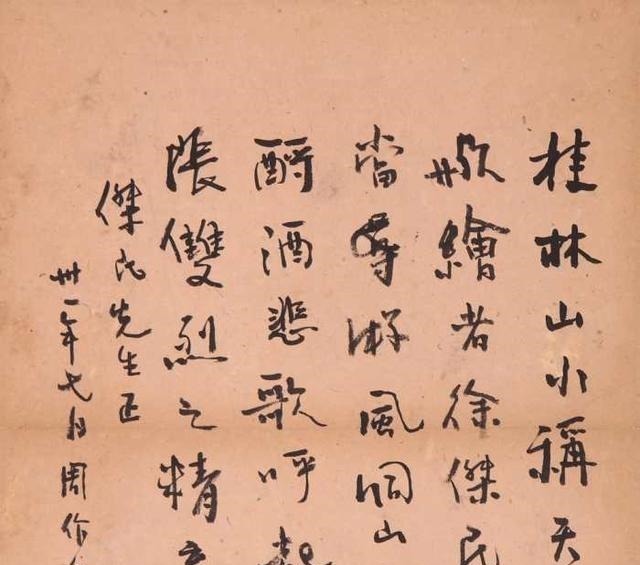 桂林山水稱天
繪者徐傑民
當尋游風洞山
酹酒悲歌呼起
張雙烈之精
傑民先生正
卅一年七月周作